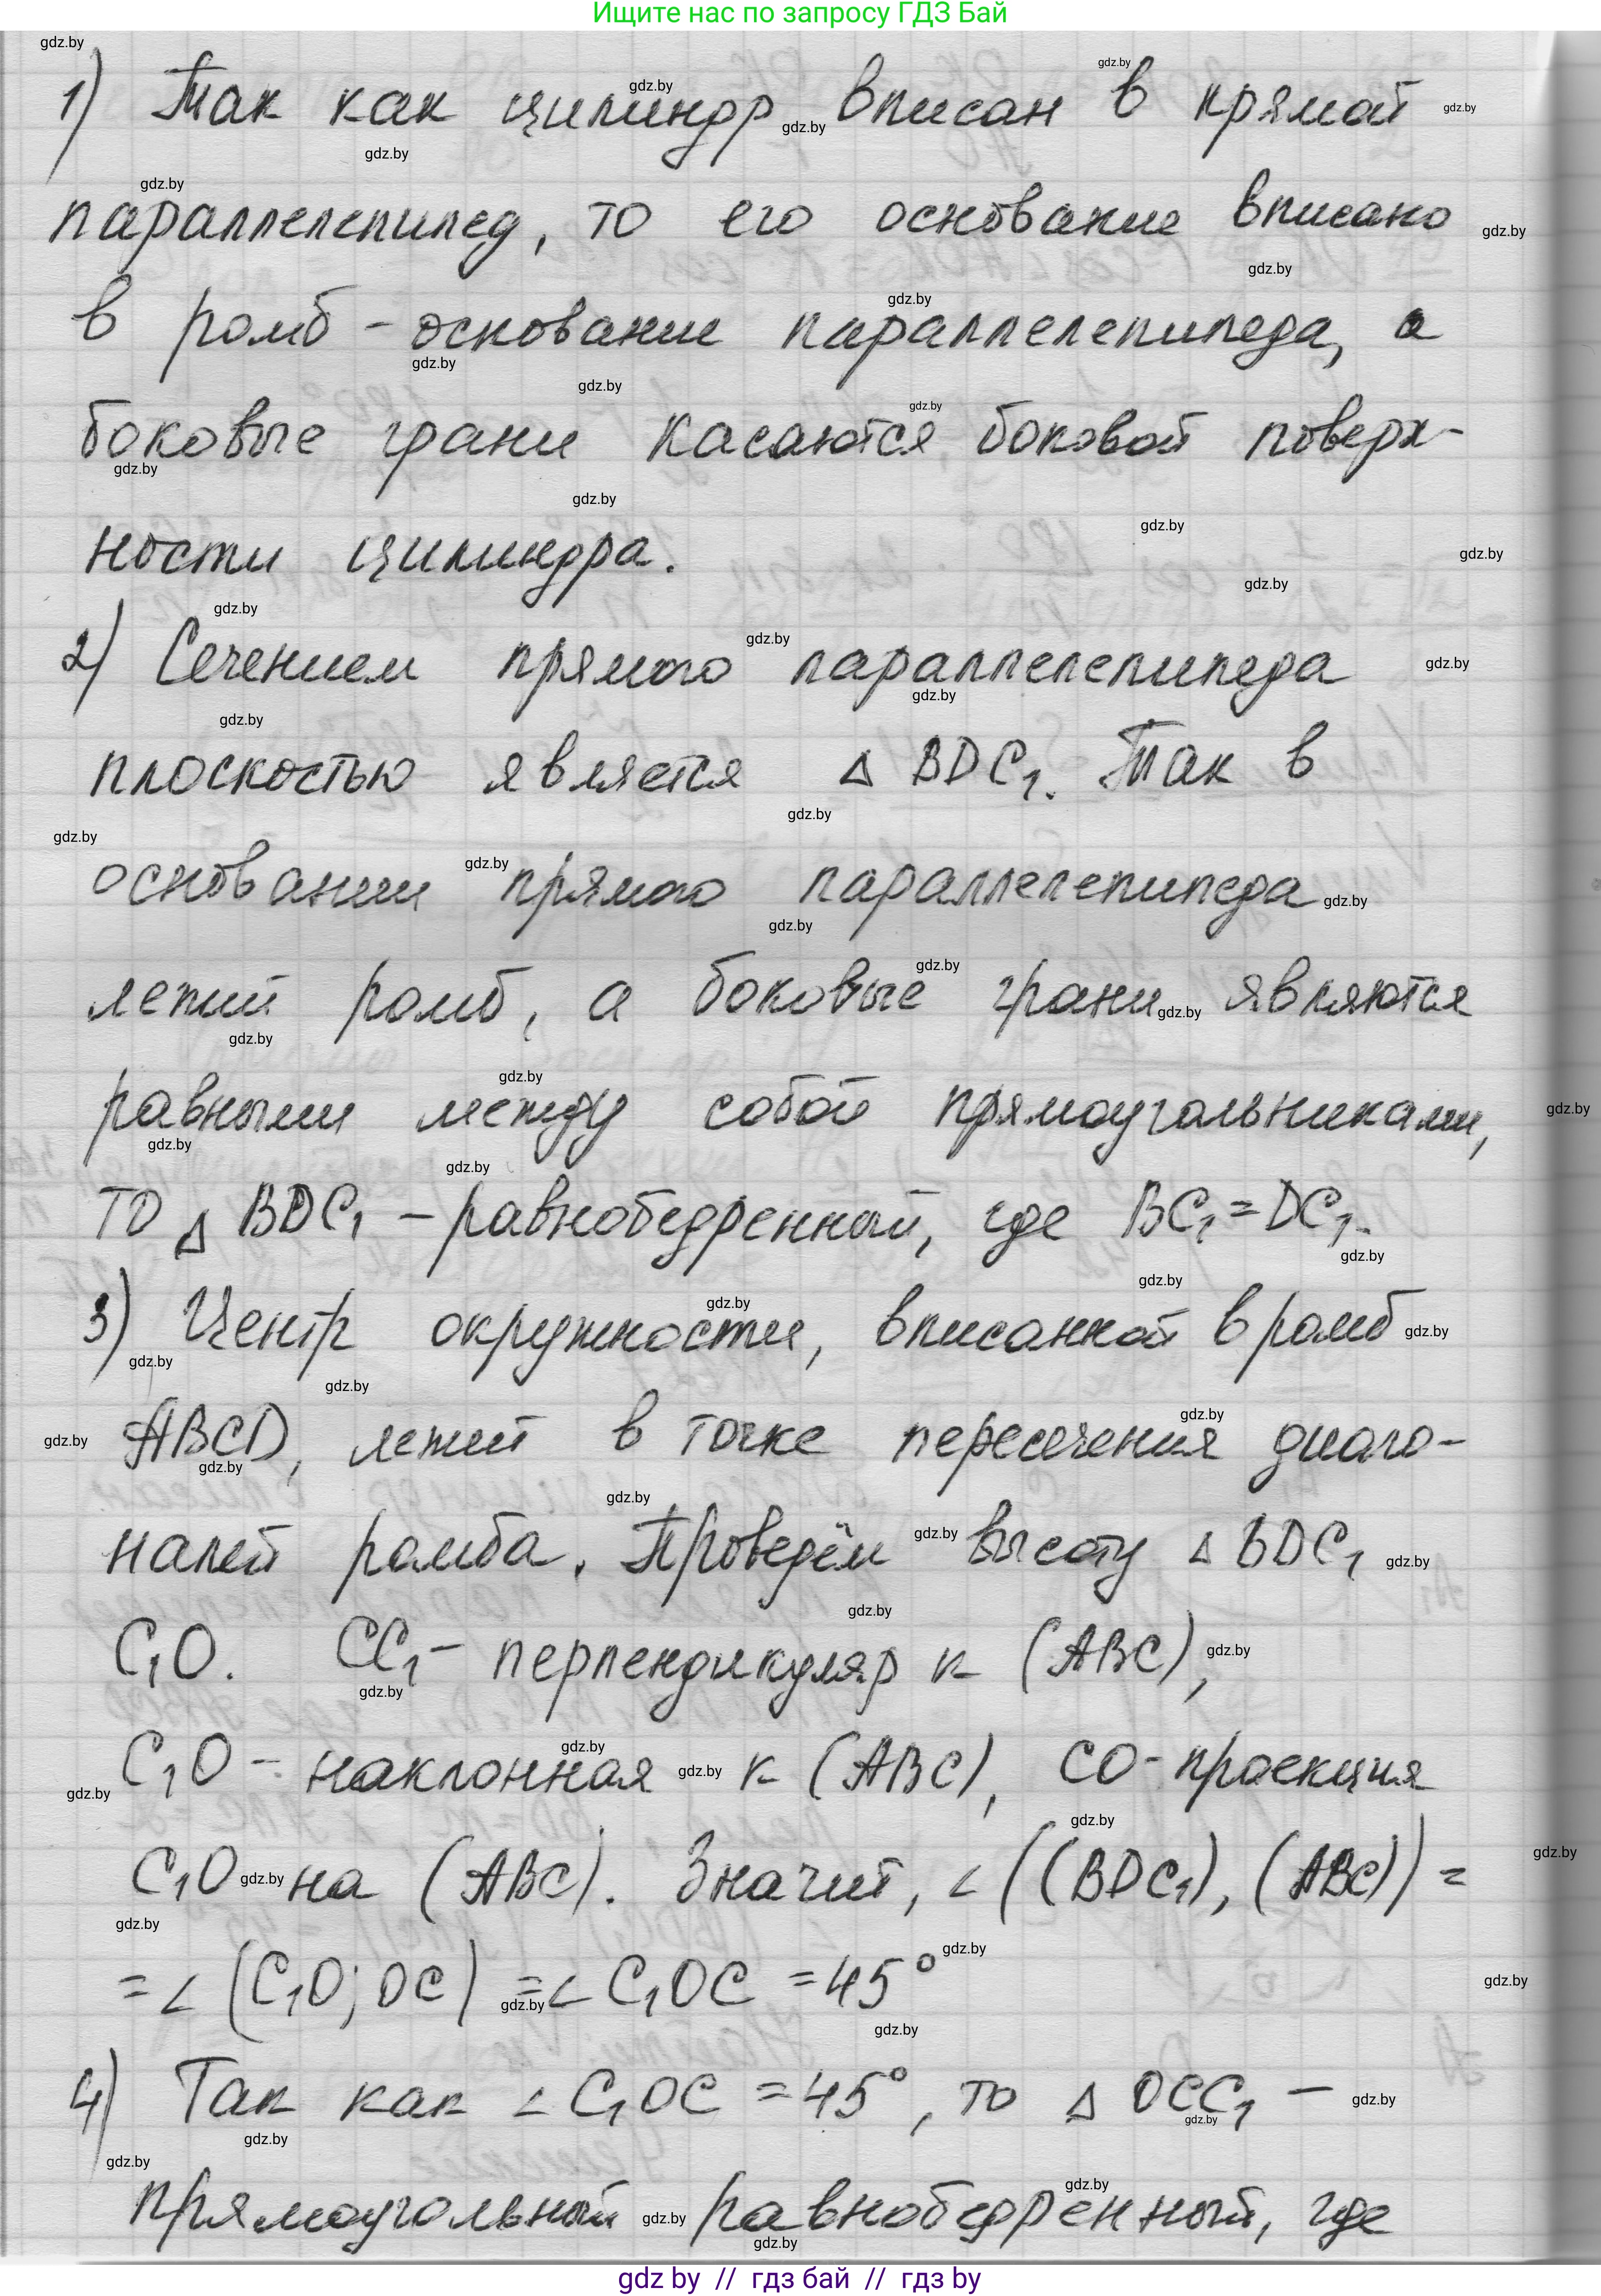 Ищите нас по запросу ГДЗ Бай
1) Так как цилиндр вписан в прямой
параллелепипед, то его основание вписано
в ромб - основание параллелепипеда, а
боковые грани касаются боковой поверх-
ности цилиндра.
2) Сечением прямого параллелепипеда
плоскостью является Δ BDC₁. Так в
основании прямого параллелепипеда
лежит ромб, а боковые грани являются
равными между собой прямоугольниками,
то Δ BDC₁ – равнобедренный, где BC₁ = DC₁.
3) Центр окружности, вписанной в ромб
ABCD, лежит в точке пересечения диаго-
налей ромба. Проведём высоту Δ BDC₁
C₁O. CC₁ – перпендикуляр к (ABC),
C₁O – наклонная к (ABC), CO - проекция
C₁O на (ABC). Значит, ∠((BDC₁), (ABC)) =
= ∠(C₁O; OC) = ∠C₁OC = 45°
4) Так как ∠C₁OC = 45°, то Δ OCC₁ –
прямоугольный равнобедренный, где
gdz by // гдз бай // гдз by